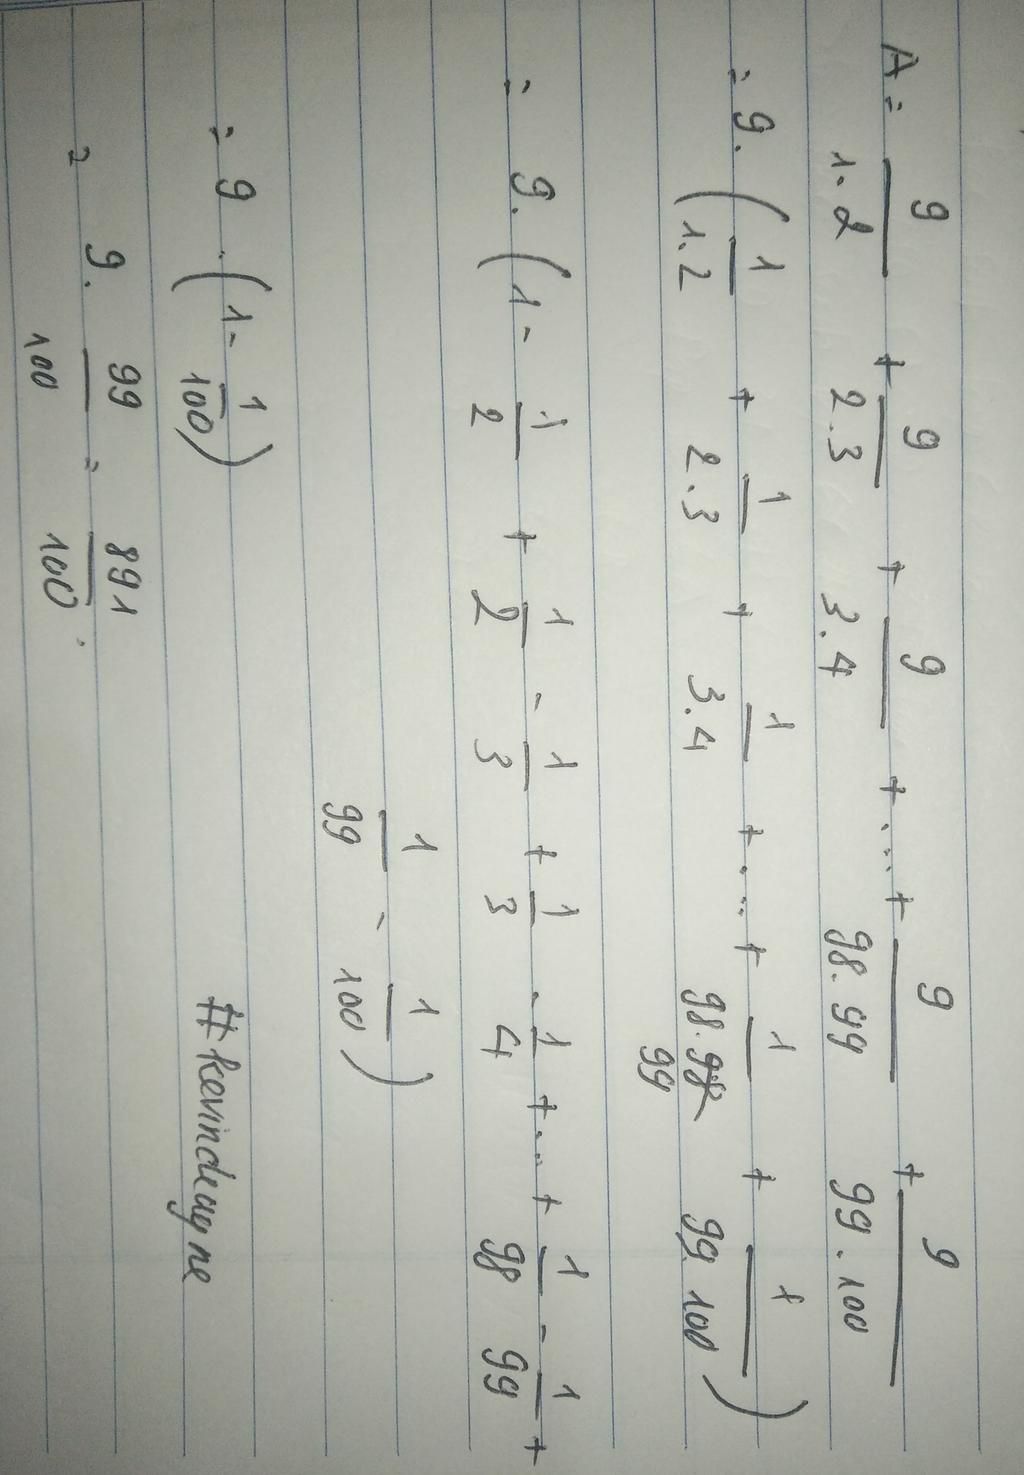 A = 9/1.2 + 9/2.3 + 9/3.4 + ... + 9/98.99 + 9/99.100
= 9. (1/1.2 + 1/2.3 + 1/3.4 + ... + 1/98.99 + 1/99.100)
= 9. (1 - 1/2 + 1/2 - 1/3 + 1/3 - 1/4 + ... + 1/98 - 1/99 +
1/99 - 1/100)
= 9 . (1 - 1/100)
= 9. 99/100 = 891/100.